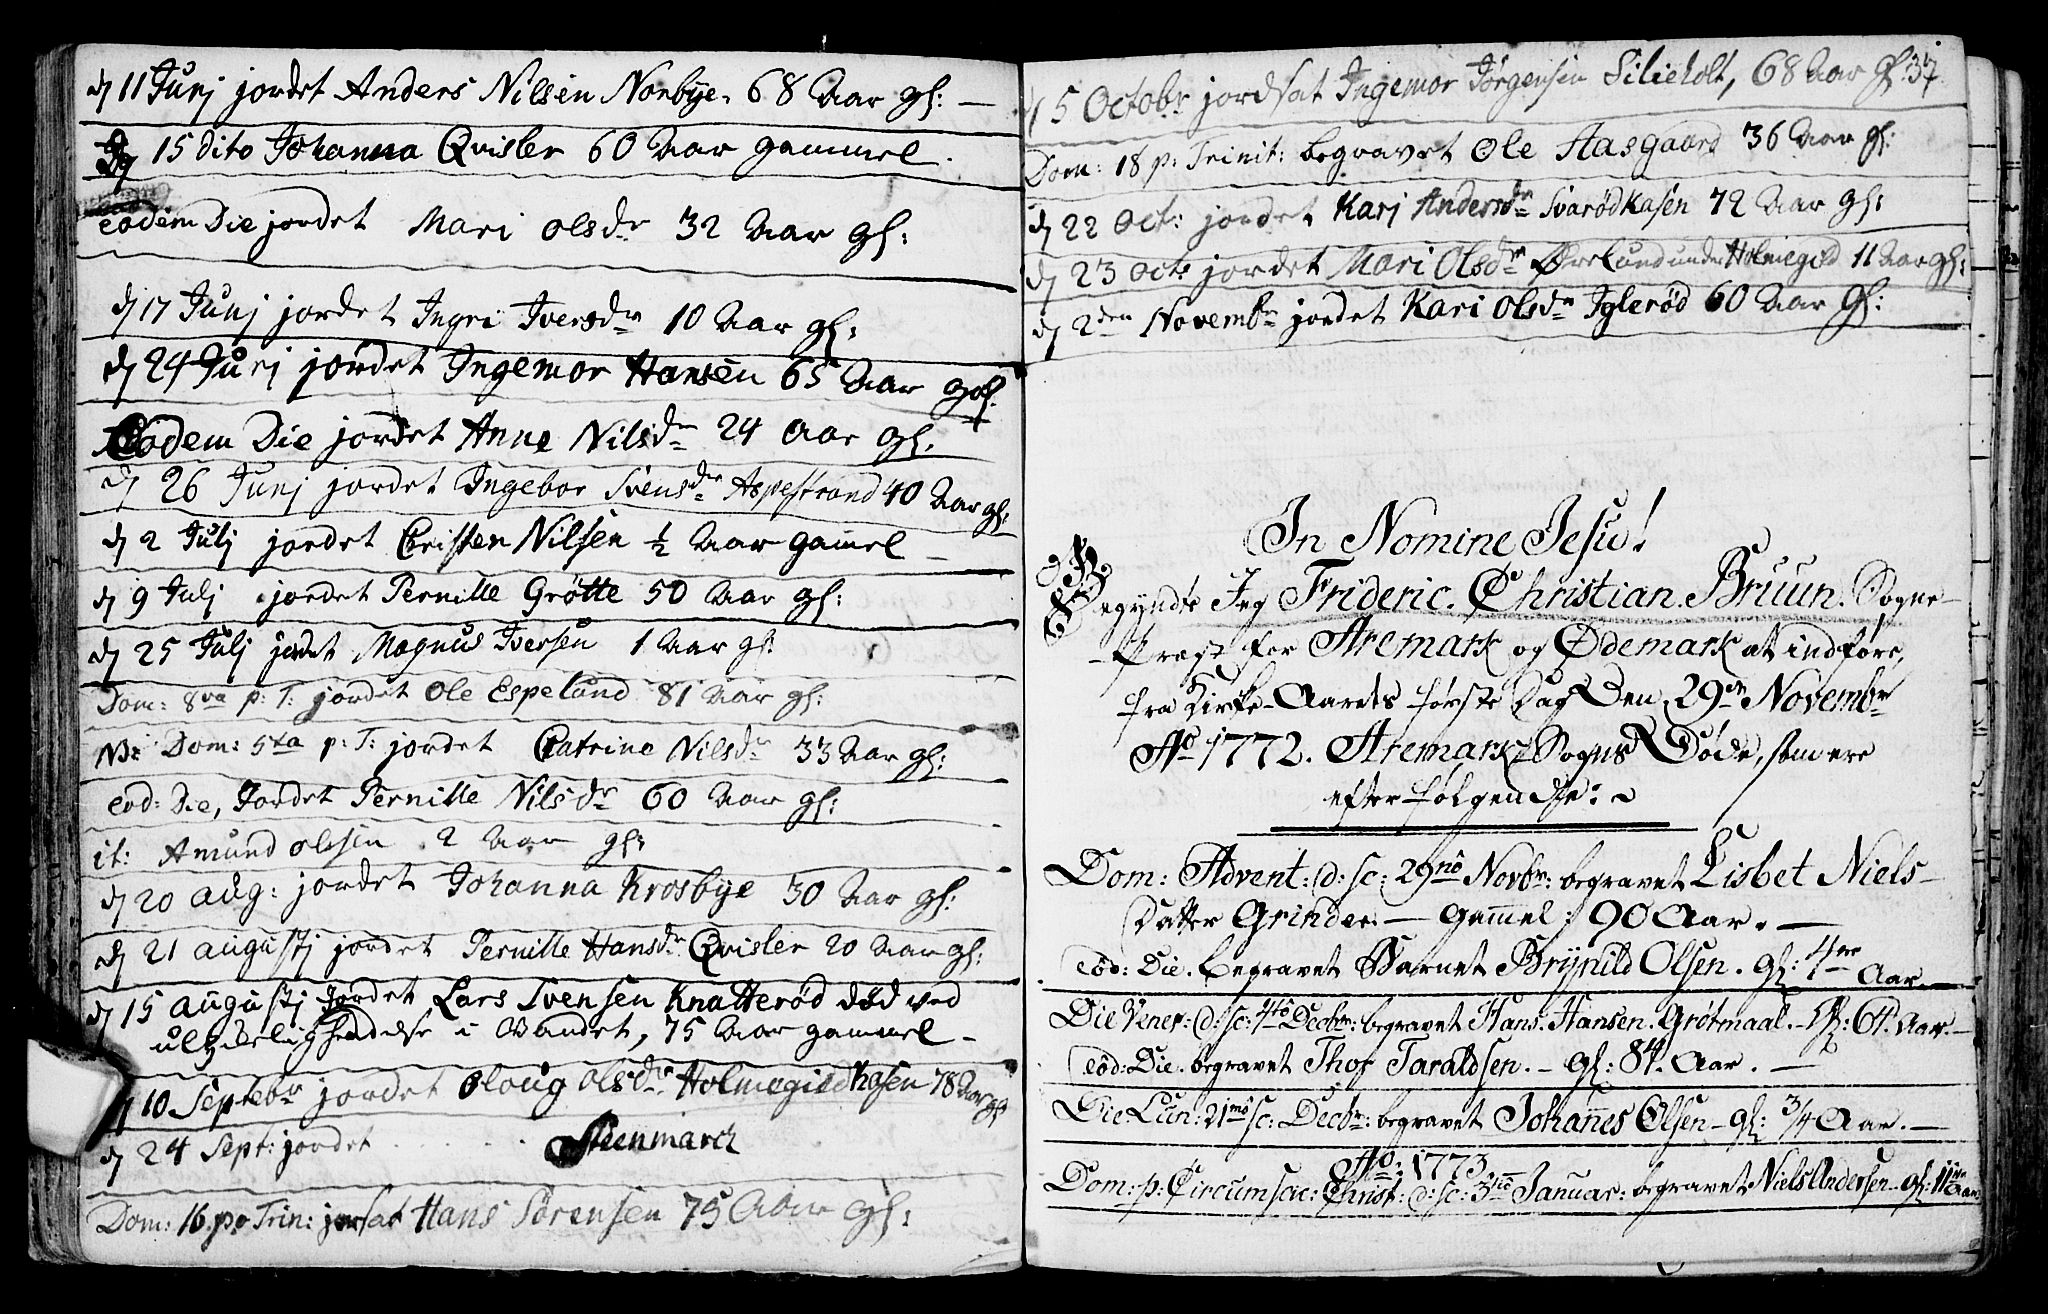 d 11 Junj jordet Anders Nilsen Norbye. 68 Aar gl: —
d 15 dito Johanna Qvisler 60 Aar gammel.
eodem Die jordet Mari Olsdr 32 Aar gl:
d 17 Junj jordet Ingri Iversdr 10 Aar gl:
d 24 Junj jordet Ingemor Hansen 65 Aar gl:
Eodem Die jordet Anne Nilsdr 24 Aar gl.
d 26 Junj jordet Ingebor Svensdr Aspestrand 40 Aar gl:
d 2 Julj jordet Christen Nilsen ½ Aar gamel —
d 9 Julj jordet Pernille Grøtte 50 Aar gl:
d 25 Julj jordet Magnus Iversen 1 Aar gl:
Dom: 8va p: T: jordet Ole Espelund 81 Aar gl:
NB: Dom: 5ta p: T: jordet Catrine Nilsdr 33 Aar gl:
eod: Die, Jordet Pernille Nilsdr 60 Aar gl:
it: Amund Olssen 2 Aar gl:
d 20 Aug: jordet Johanna Krosbye 30 Aar gl:
d 21 Augustj jordet Pernille Hansdr Qvisler 20 Aar gl:
d 15 Augustj Jordet Lars Svensen Knatterød død ved
ulykkelig hendelse i Vandet, 75 Aar gammel —
d 10 Septebr jordet Oloug Olsdr Holmegild Kasen 78 Aar gl
d 24 Sept: jordet . . . . . Steenmarch
Dom: 16 p Trin: jorsat Hans Sørensen 75 Aar gl:
37.
d 5 Octobr jordsat Ingemor Jørgensen Silieholt, 68 Aar gl:
Dom: 18 p: Trinit: begravet Ole Aasgaard 36 Aar gl:
d 22 Oct: jordet Karj Andersdr Svarødkasen 72 Aar gl:
d 23 Oct: jordet Mari Olsdr Ørelund under Holmegild 11 Aar gl:
d 2den Novembr jordet Kari Olsdr Iglerød 60 Aar gl:
In Nomine Jesu!
Begyndte Jeg Frideric. Christian. Bruun. Sogne-
Præst for Aremark og Ødemark at indføre,
fra Kirke-Aarets første Dag Den 29de Novembr
Ao 1772. Aremarks Sogns Døde, som ere
efterfølgende: ~
Dom: Advent: d: sc: 29no Novbr: begravet Lisbet Niels-
Datter Grinder. — gamel: 90 Aar. —
eod: Die. begravet Barnet Brynild Olsen. gl: 4re Aar. —
Die Vener: d: sc: 4to Decbr: begravet Hans Hansen. Grøtmaal. — gl: 64. Aar. —
eod: Die. begravet Thor Taraldsen. — gl: 84. Aar. —
Die Lun: 21mo sc: Decbr: begravet Johannes Olsen — gl: 3/4 Aar. —
Ao: 1773.
Dom: p: Circumsci: Christ: d: sc: 3tio Januar: begravet Niels Andersen — gl: 11 Aar